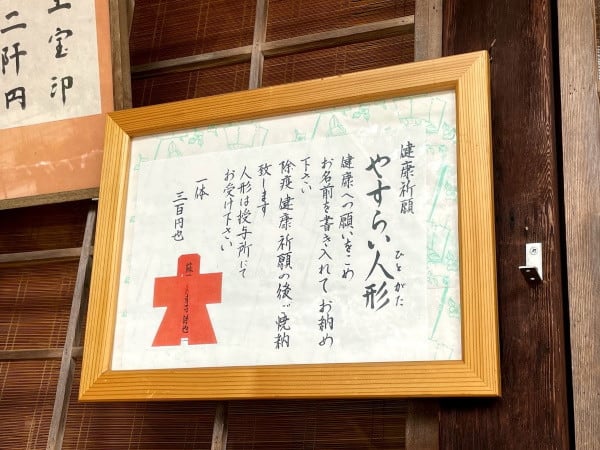 健康祈願
やすらい人形
ひとがた
健康への願いをこめ
お名前を書き入れて お納め
下さい
除疫 健康祈願の後ご焼納
致します
人形は授与所にて
お受け下さい
一体
三百円也
宝印
二阡円